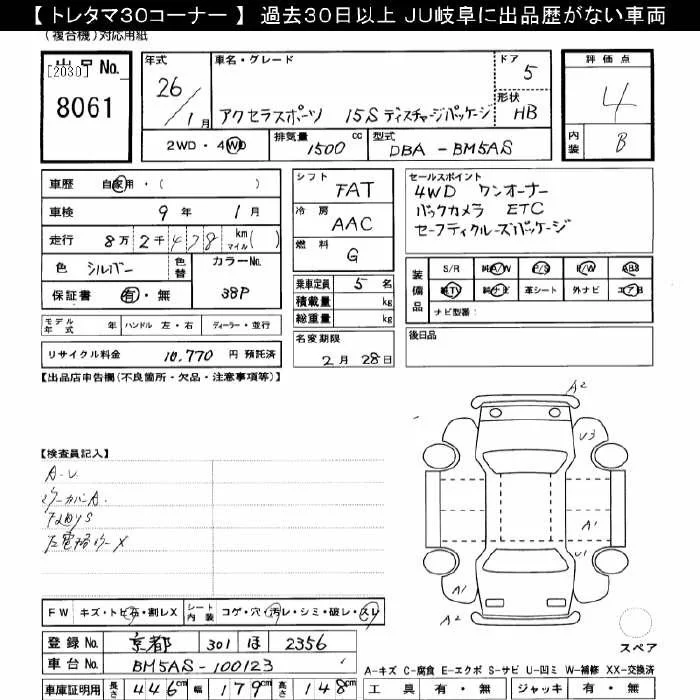 【 トレタマ30コーナー 】 過去30日以上 JU岐阜に出品歴がない車両
(複合機)対応用紙
出品 No. [2030] 8061
年式 26/1月
車名・グレード アクセラスポーツ 15S ディスチャージパッケージ
ドア 5
形状 HB
評価点 4
内装 B
2WD・4WD
排気量 1500 cc
型式 DBA-BM5AS
車歴 自家用・( )
車検 9年 1月
走行 8万2千478 km マイル( )
色 シルバー 色替
カラーNo. 38P
保証書 有・無
シフト FAT
冷房 AAC
燃料 G
セールスポイント
4WD ワンオーナー
バックカメラ ETC
セーフティクルーズパッケージ
乗車定員 5 名
積載量 kg
総重量 kg
装備品 S/R 純A/W P/S P/W ABS
純TV 純ナビ 革シート 外ナビ エアB
ナビ型番:
モデル年式 年 ハンドル 左・右 ディーラー・並行
名変期限 2月 28日
後日品
リサイクル料金 10,770 円 預託済
【出品店申告欄(不良箇所・欠品・注意事項等)】
A2
U3
【検査員記入】
A・U
A1
U1
A1
A2
FW キズ・トビ石・割レX シート内装 コゲ・穴・汚レ・シミ・破レ・スレ
登録 No. 京都 301 ほ 2356
スペア
車台 No. BM5AS-100123
A-キズ C-腐食 E-エクボ S-サビ U-凹ミ W-補修 XX-交換済
車庫証明用 長さ 446cm 幅 179cm 高さ 148cm
工具 有・無 ジャッキ 有・無